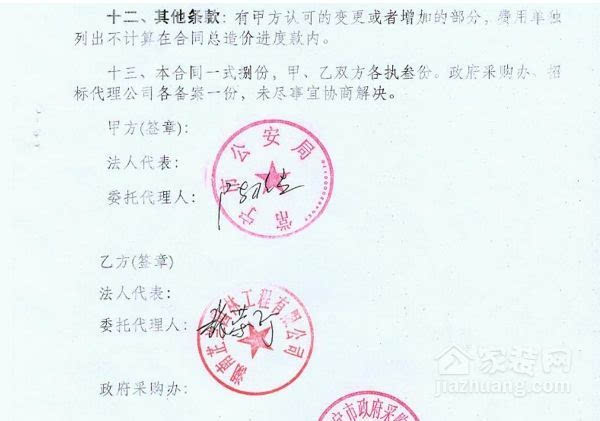 十二、其他条款：有甲方认可的变更或者增加的部分，费用单独
列出不计算在合同总造价进度款内。
十三、本合同一式捌份，甲、乙双方各执叁份。政府采购办、招
标代理公司各备案一份，未尽事宜协商解决。
甲方(签章)：
法人代表：
委托代理人：
常宁市公安局
乙方(签章)
法人代表：
委托代理人：
湖南 林工程有限公司
政府采购办：
宁市政府采
家装网
jiazhuang.com